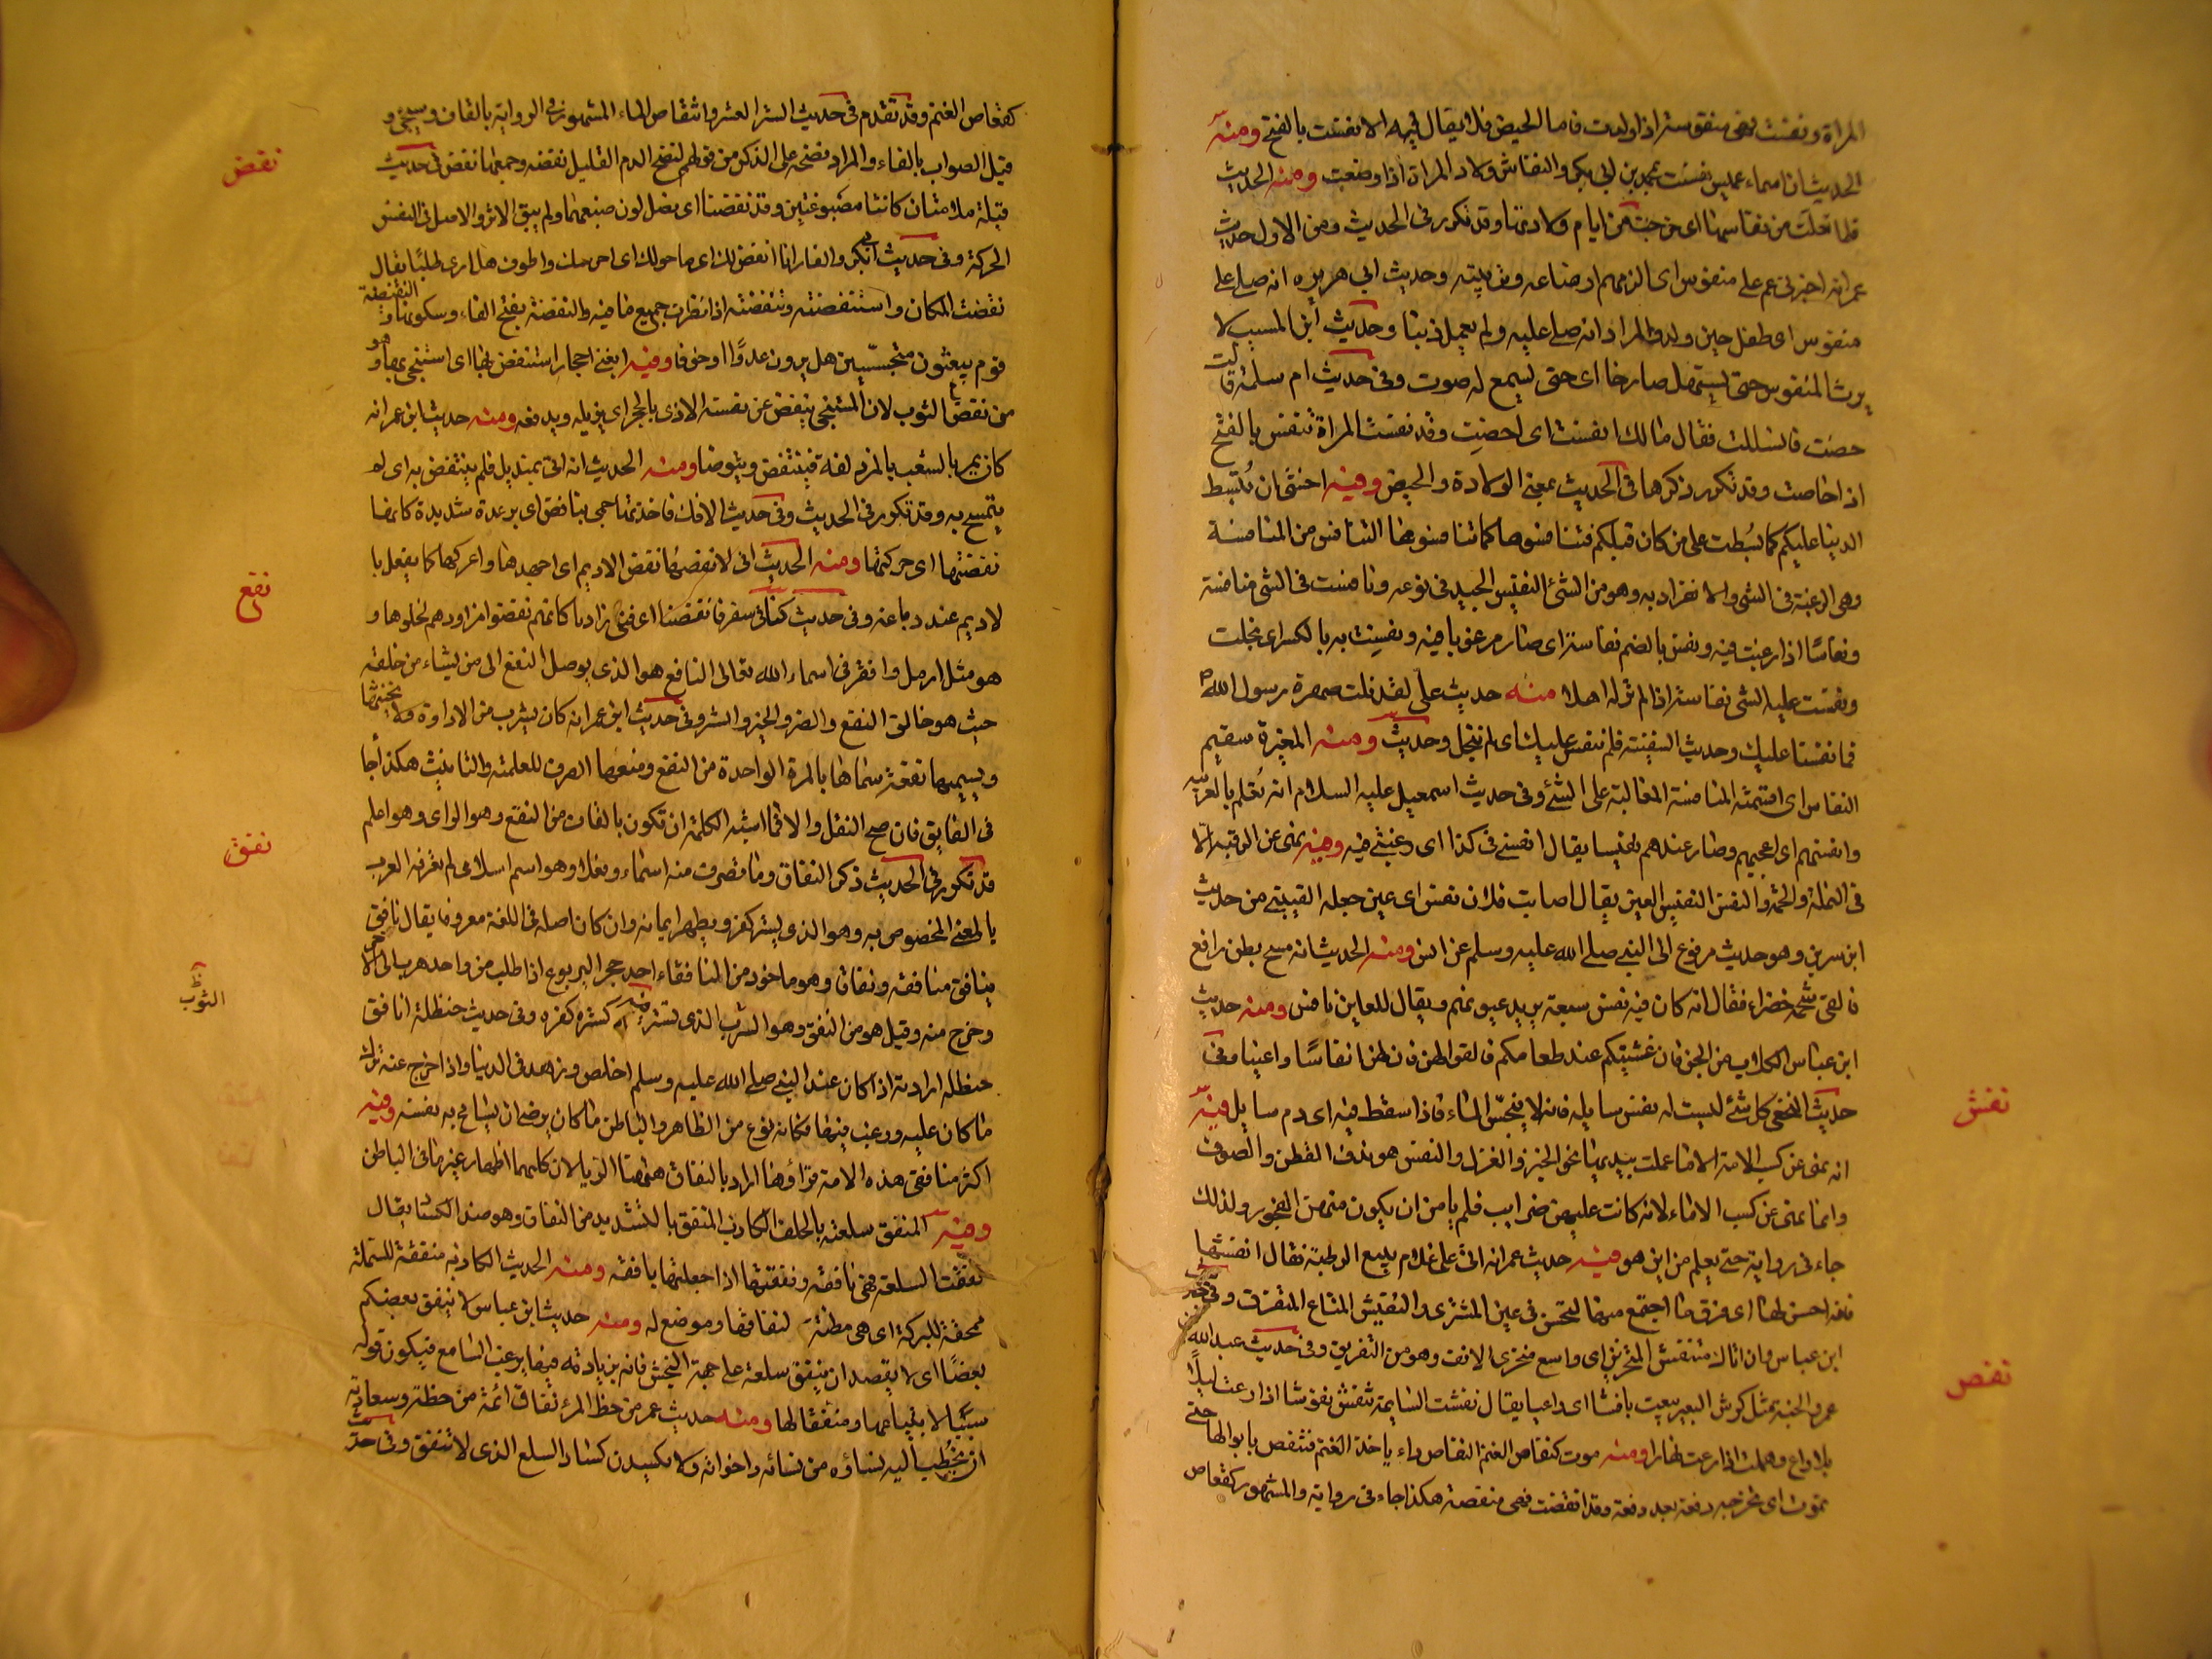 المراة ونفست فهى منفوسة اذا ولدت فاما الحيض فلا يقال فيه الا نفست بالفتح ومنه
الحديث ان اسماء عميس نفست بمحمد بن ابى بكر والنفاس ولاد المراة اذا وضعت ومنه الحديث
فلما تعلت من نفاسها اى خرجت من ايام ولادتها وقد تكرر فى الحديث ومن الاول حديث
عمر انه اجبر بنى عم على منفوس اى الزمهم ارضاعه وتربيته وحديث ابى هريره انه صلى على
منفوس اى طفل حين ولد والمراد انه صلى عليه ولم يعمل ذنبا وحديث ابن المسيب لا
يرث المنفوس حتى يستهل صارخا اى حتى يسمع له صوت وفى حديث ام سلمة قالت
حضت فانسللت فقال مالك انفست اى احضت وقد نفست المراة تنفس بالفتح
اذا حاضت وقد تكرر ذكرها فى الحديث بمعنى الولادة والحيض وفيه اخشى ان تبسط
الدينا عليكم كما بسطت على من كان قبلكم فتنافسوها كما تنافسوها التنافس من المنافسة
وهى الرغبة فى الشى والانفراد به وهو من الشئ النفيس الجيد فى نوعه ونافست فى الشى منافسة
ونفاسا اذا رغبت فيه ونفس بالضم نفاسة اى صار مرغوبا فيه ونفست به بالكسر اى بخلت
ونفست عليه الشى نفاسة اذا لم تره له اهلا منه حديث على لقد نلت صهرة رسول الله
فما نفسنا عليك وحديث السفينة فلم ننفس عليك اى لم نبخل وحديث ومنه المغيرة سقيم
النفاس اى اسقمته المنافسة المغالبة على الشئ وفى حديث اسمعيل عليه السلام انه تعلم بالعربيه
وانفسهم اى اعجبهم وصار عندهم نفيسا يقال انفسنى فى كذا اى رغبنى فيه وفيه نهى عن الرقيه الا
فى النملة والحمة والنفس النفس العين يقال اصابت فلان نفس اى عين جعله القتيبى من حديث
ابن سرين وهو حديث مرفوع الى النبى صلى الله عليه وسلم عن انس ومنه الحديث انه مسح بطن رافع
فالقى شحمة خضراء فقال انه كان فيه نفس سبعة يريد عيونهم ويقال للعاين نافس ومنه حديث
ابن عباس الكلاب من الجن فان غشيتكم عند طعامكم فالقوا لهن فان لهن انفاسا واعينا وفى
حديث النخعى كل شئ ليست له نفس سايله فانه لا ينجس الماء فاذا سقط فيه اى دم سايل فيه
نفش
انه نهى عن كسب الامة الا ما عملت بيديها نحو الخبز والغزل والنفس هو ندف القطن والصوف
وانما نهى عن كسب الاماء لانه كانت عليهن ضرايب فلم يامن ان يكون منهن الفجور ولذلك
جاء فى رواية حتى يعلم من اين هو فيه حديث عمر انه اتى على غلام يبيع الرطبة فقال انفشها
فانه احسن لها اى فرق ما اجتمع منها لتحسن فى عين المشترى والنفيش المتاع المتفرق وفى حديث
ابن عباس وان اتاك منتفش المنخرين اى واسع منخرى الانف وهو من التفريق وفى حديث عبد الله بن
عمر والحبة مثل كرش البعير يبيت نافشا اى راعيا يقال نفشت السايمة تنفش نفوشا اذا رعت ليلا
نفص
بلا راع وهملت اذا رعت نهارا ومنه موت كنفاص الغنم النفاص داء ياخذ الغنم فتنفص بابوالها حتى
تموت اى تخرجه دفعة بعد دفعة وقد انفصت فهى منفصة هكذا جاء فى رواية والمشهور كقعاص
كقعاص الغنم وقد تقدم فى حديث السنن العشر وانتقاص الماء المشهور فى الرواية بالقاف وسيجئ و
قيل الصواب بالفاء والمراد نضحه على الذكر من قولهم لنضح الدم القليل نفصة وجمعها نفص فى حديث
نفض
قيلة ملاءتان كانتا مصبوغتين وقد نفضتا اى نصل لون صبغهما ولم يبق الا اثر والاصل فى النفض
الحركة وفى حديث ابى بكر والغار انا انفض لك اى ما حولك اى احرسك واطوف هل ارى طلبا يقال
نفضت المكان واستنفضته وتنفضته اذا نظرت جميع ما فيه والنفضة بفتح الفاء وسكونها و النفيضة
قوم يبعثون متجسسين هل يرون عدوا او خوفا وفيه ابغنى احجارا استنفض بها اى استنجى بها وهو
من نفض الثوب لان المستنجى ينفض عن نفسه الاذى بالحجر اى يزيله ويدفعه ومنه حديث ابن عمر انه
كان يمر بالشعب بالمزدلفة فينتفض ويتوضا ومنه الحديث انه اتى بمنديل فلم ينتفض به اى لم
يتمسح به وقد تكرر فى الحديث وفى حديث الافك فاخذتها حمى بنافض اى برعدة شديدة كانها
نفضتها اى حركتها ومنه الحديث انى لانفضها نفض الاديم اى اجهدها واعركها كما يفعل با
لاديم عند دباغه وفى حديث كنا فى سفر فانفضنا اى فنى زادنا كانهم نفضوا مزاودهم لخلوها و
نفع
هو مثل ارمل وافقر فى اسماء الله تعالى النافع هو الذى يوصل النفع الى من يشاء من خلقه
حيث هو خالق النفع والضر والخير والشر وفى حديث ابن عمر انه كان يشرب من الاداوة ولا يخنثها
ويسميها نفعة سماها بالمرة الواحدة من النفع ومنعها الصرف للعلمية والتانيث هكذا جا
فى الفايق فان صح النقل والا فما اشبه الكلمة ان تكون بالقاف من النقع وهو الراى وهو اعلم
نفق
قد تكرر فى الحديث ذكر النفاق وما تصرف منه اسماء وفعلا وهو اسم اسلامى لم تعرفه العرب
بالمعنى المخصوص به وهو الذى يستر كفره ويظهر ايمانه وان كان اصله فى اللغة معروفا يقال نافق
ينافق منافقة ونفاقا وهو ماخوذ من النافقاء احد جحر اليربوع اذا طلب من واحد هرب الى الاخر
وخرج منه وقيل هو من النفق وهو السرب الذى يستتر فيه كستره كفره وفى حديث حنظلة انافق
حنظله اراد به اذا كان عند النبى صلى الله عليه وسلم اخلص وزهد فى الدنيا واذا خرج عنه ترك
ما كان عليه ورغب فيها فكانه نوع من الظاهر والباطن ما كان يرضى ان يتسامح به نفسه وفيه
اكثر منافقى هذه الامة قراؤها المراد بالنفاق ههنا الريا لان كليهما اظهار غير ما فى الباطن
وفيه المنفق سلعته بالحلف الكاذب المنفق بالتشديد من النفاق وهو ضد الكساد يقال
نفقت السلعة فهى نافقة ونفقتها اذا جعلتها نافقة ومنه الحديث الكاذبة منفقة للسلعة
ممحقة للبركة اى هى مظنة لنفاقها وموضع له ومنه حديث ابن عباس لا ينفق بعضكم
بعضا اى لا يقصد ان ينفق سلعة على جهة النجش فانه بزيادته فيها يرغب السامع فيكون قوله
سببا لابتياعها ومنفقا لها ومنه حديث عمر من حظ المرء نفاق ايمه من حظه وسعادته
ان يخطب اليه نساؤه من نسائه واخواته ولا يكسدن كساد السلع الذى لا تنفق وفى حديث